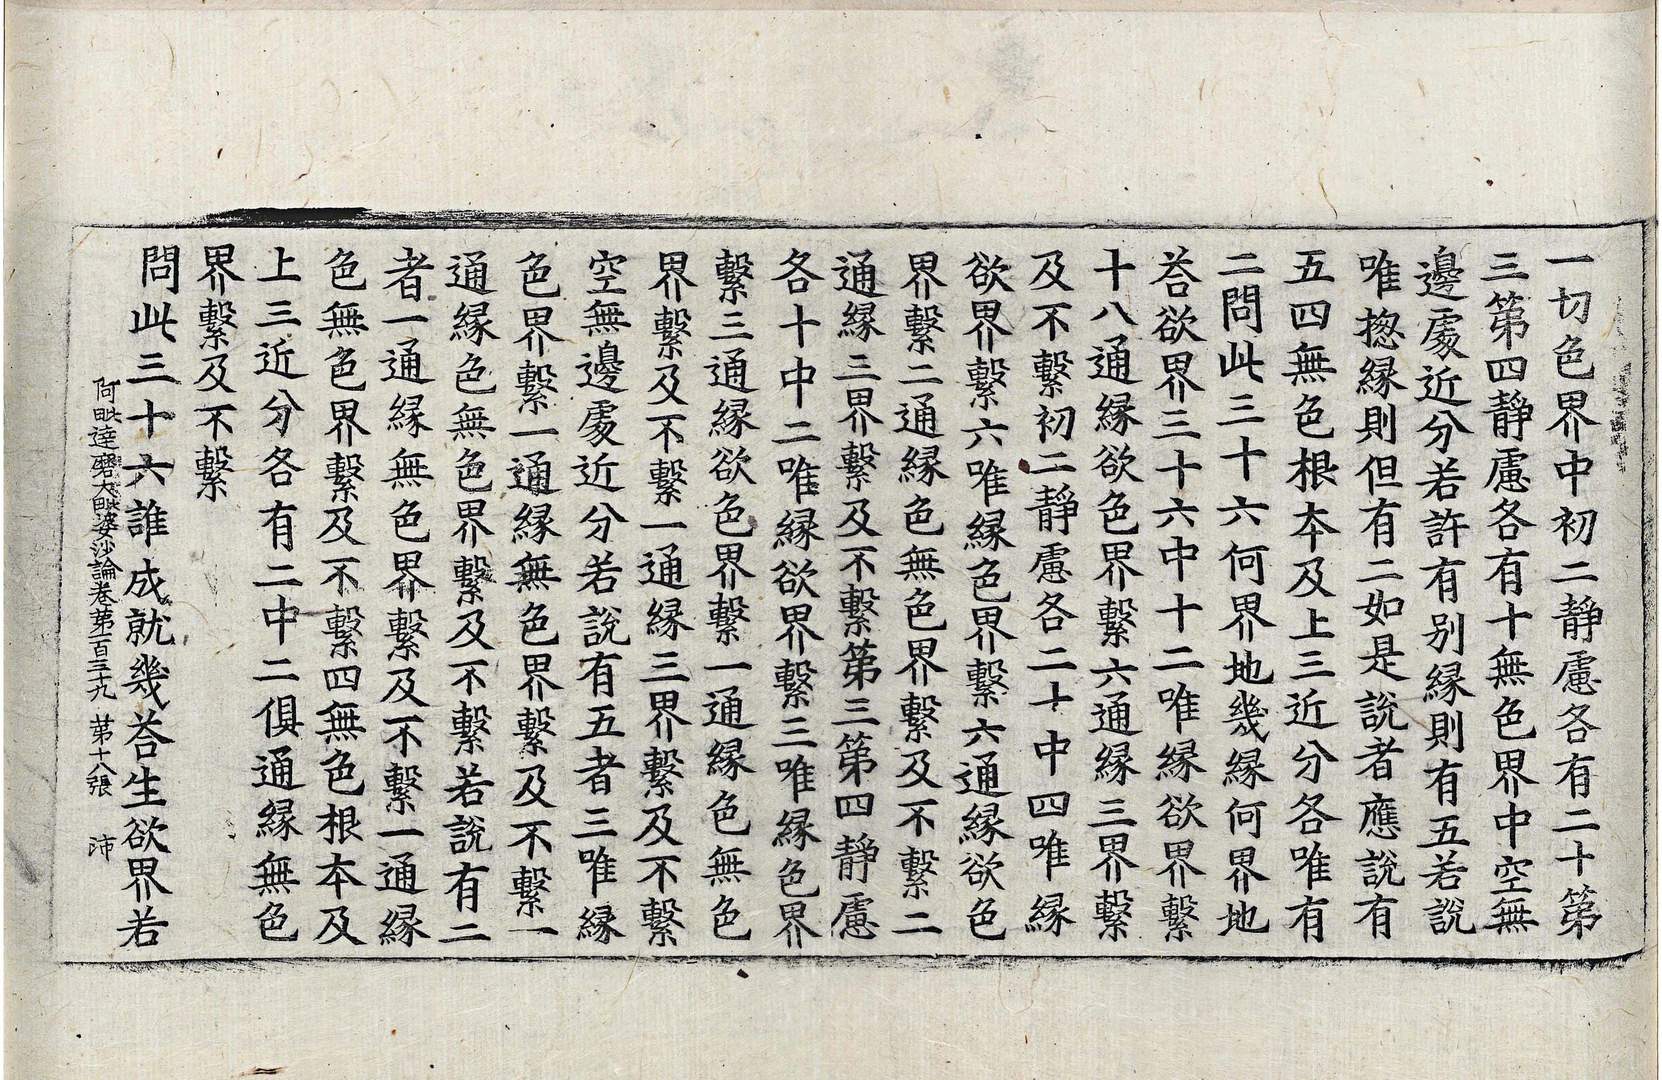 一切色界中初二静慮各有二十第
三第四静慮各有十無色界中空無
邊處近分若許有别縁則有五若說
唯揔縁則但有二如是說者應說有
五四無色根本及上三近分各唯有
二問此三十六何界地幾縁何界地
荅欲界三十六中十二唯縁欲界繫
十八通縁欲色界繫六通縁三界繫
及不繫初二静慮各二十中四唯縁
欲界繫六唯縁色界繫六通縁欲色
界繫二通縁色無色界繫及不繫二
通縁三界繫及不繫第三第四静慮
各十中二唯縁欲界繫三唯縁色界
繫三通縁欲色界繫一通縁色無色
界繫及不繫一通縁三界繫及不繫
空無邊處近分若說有五者三唯縁
色界繫一通縁無色界繫及不繫一
通縁色無色界繫及不繫若說有二
者一通縁無色界繫及不繫一通縁
色無色界繫及不繫四無色根本及
上三近分各有二中二俱通縁無色
界繫及不繫
問此三十六誰成就幾荅生欲界若
阿毗達磨大毗婆沙論卷第一百三十九 第十八張 沛